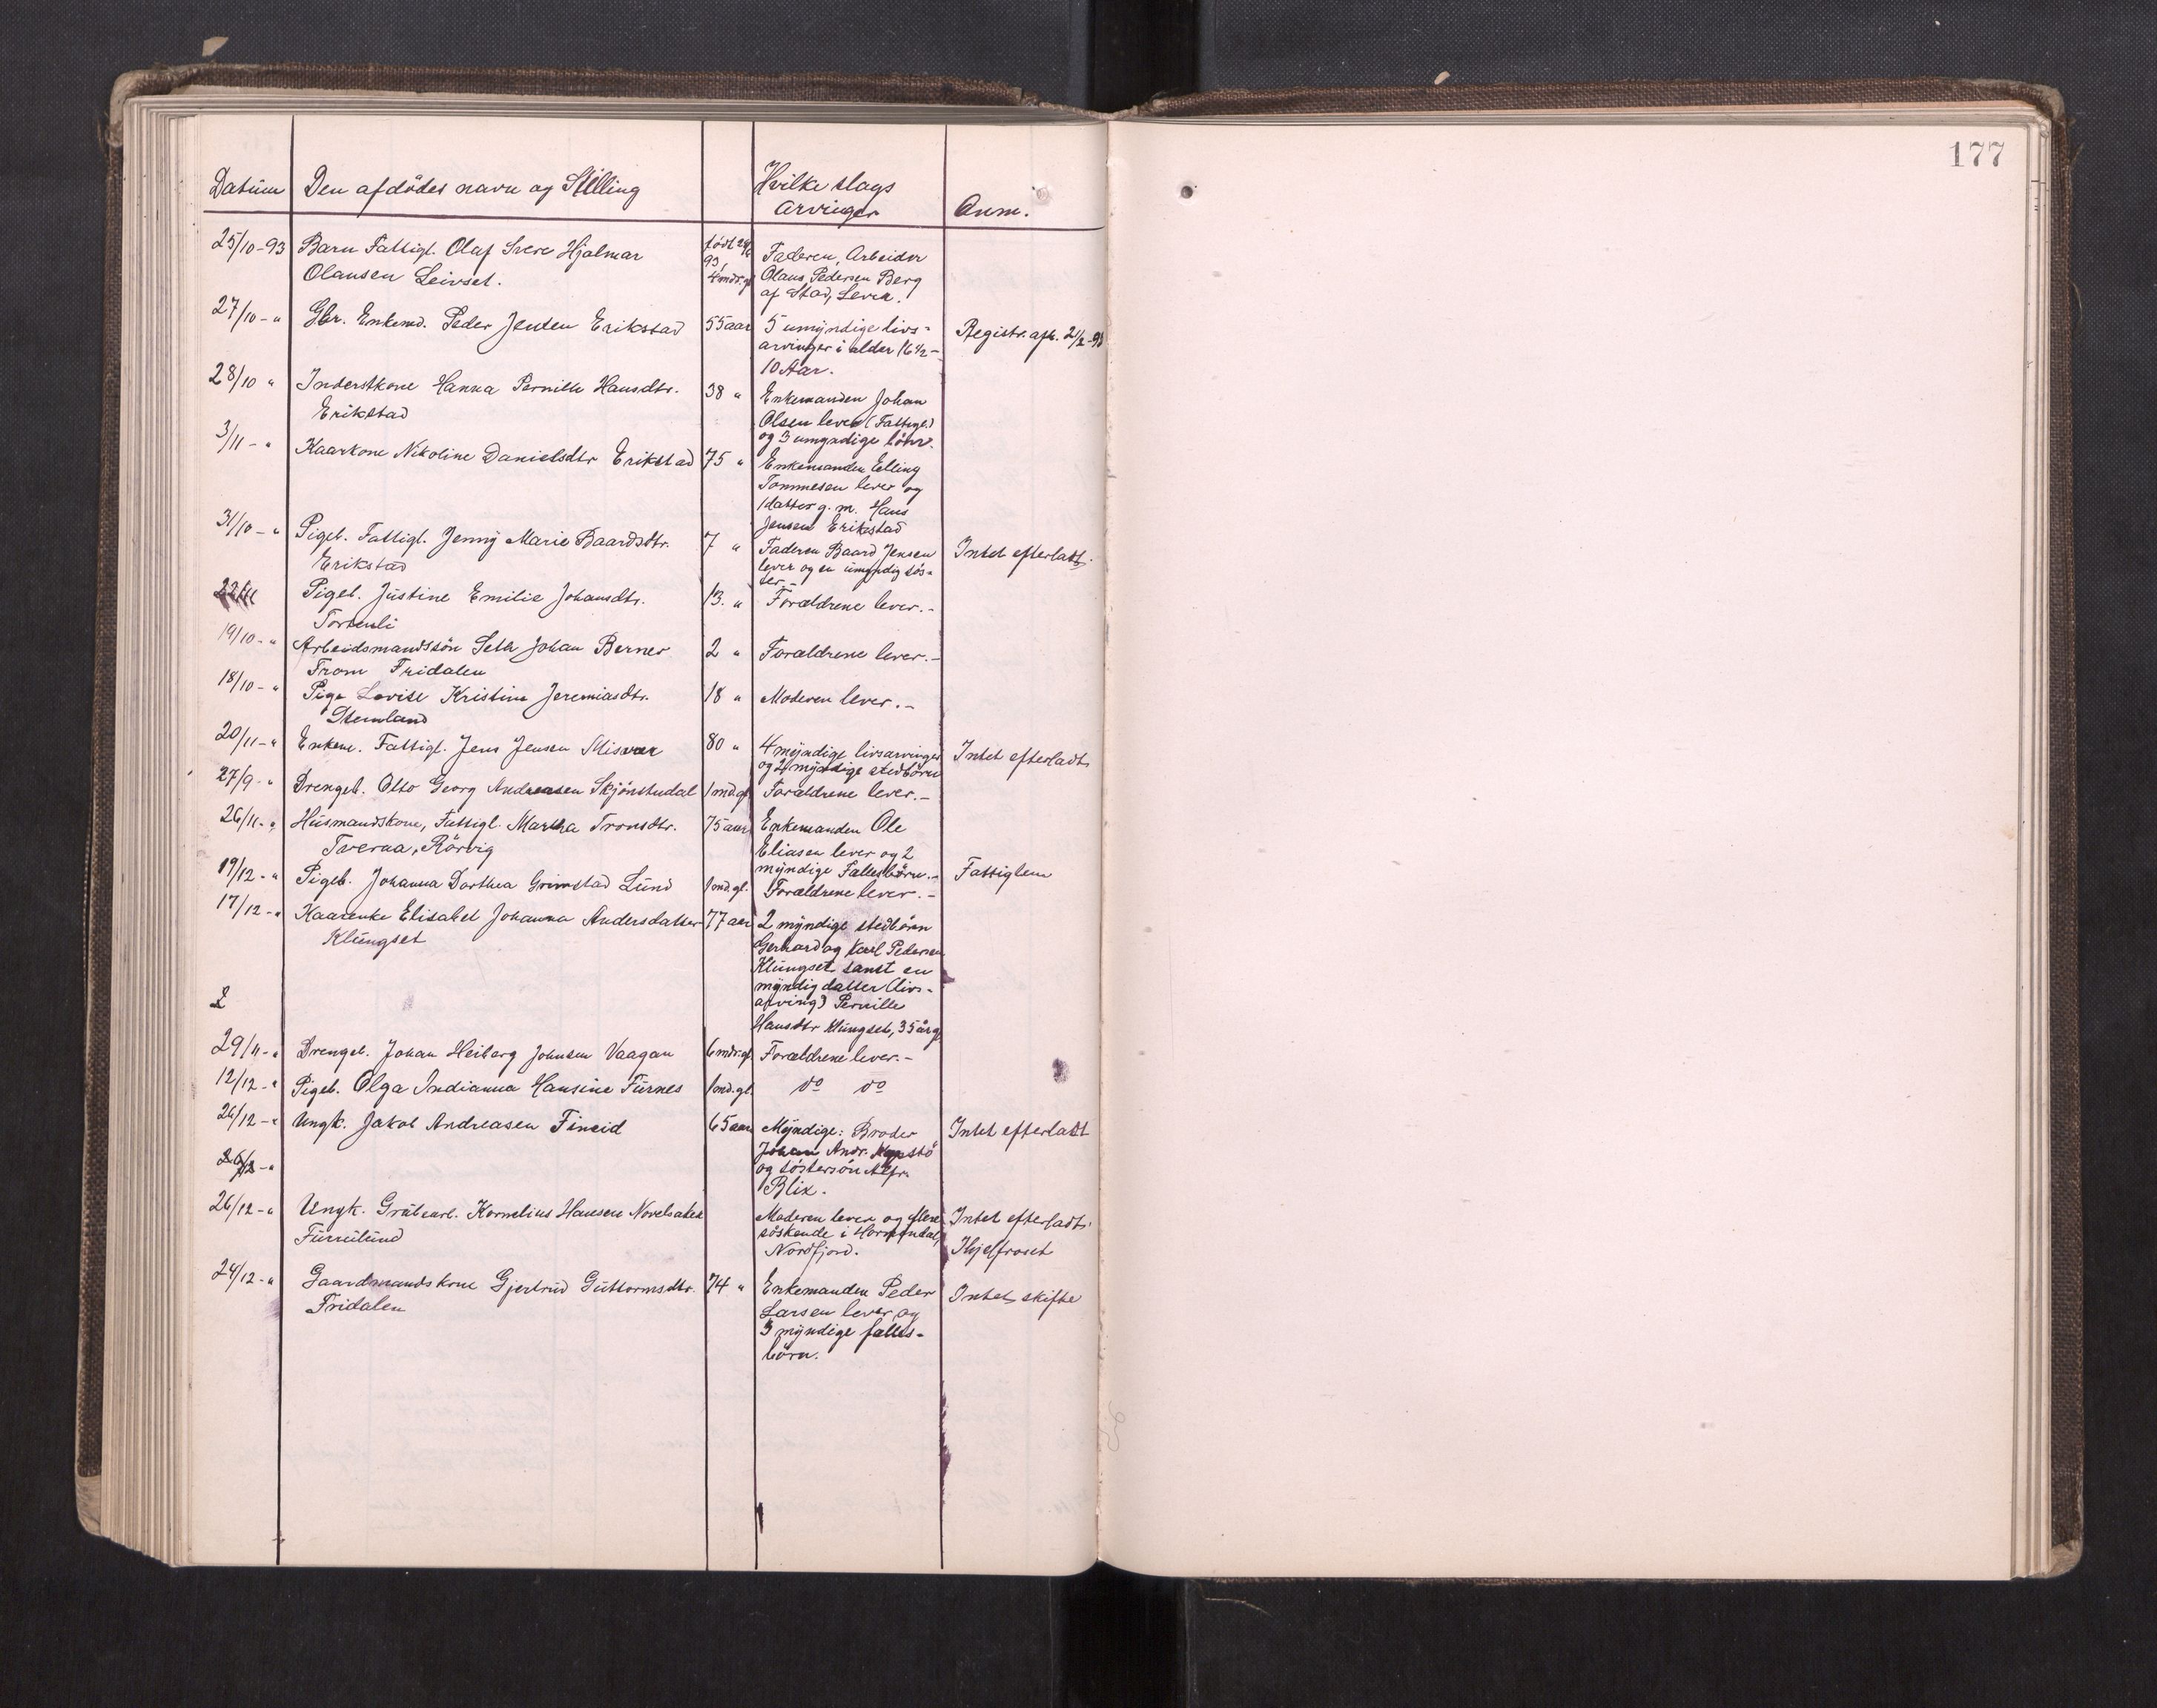 177
Datum Den afdødes navn og Stilling Hvilke slags
arvinger Anm.
25/10-93 Barn Fattigl. Olaf Svere Hjalmar født 24/6 Faderen, Arbeider
Olausen Leivset. 93, 4 mdr. gl Olaus Pedersen Berg
af Stad, Lever.
27/10-" Gbr. Enkemd. Peder Jensen Erikstad 55 aar 5 umyndige livs-
arvinger i alder 16 1/2- Registr. afh.
10 Aar.
28/10 " Inderstkone Hanna Pernille Hansdtr. 38 " Enkemanden Johan
Erikstad Olsen lever (Fattigl.)
og 3 umyndige börn.
3/11-" Kaarkone Nikoline Danielsdtr Erikstad 75 " Enkemanden Elling
Tommesen lever og
1 datter g. m. Hans
Jensen Erikstad
31/10-" Pigeb. Fattigl. Jenny Marie Baardsdtr. 7 " Faderen Baard Jensen Intet efterladt.
Erikstad lever og en umyndig sös-
ter.-
Pigeb. Justine Emilie Johansdtr. 13. " Forældrene lever.-
Tortenli
19/10-" Arbeidsmandssön Seth Johan Berner 2 " Forældrene lever.-
From Fridalen
18/10-" Pige Lovise Kristine Jeremiasdtr. 18 " Moderen lever.-
Stemland
20/11-" Enkem. Fattigl. Jens Jensen Misvær 80 " 4 myndige livsarvinger Intet efterladt
og 2 myndige stedbörn
27/9-" Drengeb. Otto Georg Andreasen Skjönstudal 1 md. gl. Forældrene lever.-
26/11-" Husmandskone, Fattigl. Martha Tronsdtr. 75 aar Enkemanden Ole
Tveraa, Rörvig Eliasen lever og 2
myndige Fællesbörn.-
19/12-" Pigeb. Johanna Dorthea Grimstad Lund 1 md. gl. Forældrene lever.- Fattiglem
17/12-" Kaarenke Elisabet Johanna Andersdatter 77 aar 2 myndige stedbörn
Klungset Gerhard og Karl Pedersen
Klungset samt en
myndig datter (livs-
2 arving) Pernille
Hansdtr Klungset, 35 år gl
29/11-" Drengeb. Johan Heiberg Johnsen Vaagan 6 mdr. gl. Forældrene lever.-
12/12-" Pigeb. Olga Indianna Hansine Furnes 1 md. gl. do do
26/12-" Ungk. Jakob Andreasen Fineid 65 aar Myndige: Broder Intet efterladt
Johan Andr.
og söstersön Alfr.
Blix.
26/12-" Ungk. Grubearb. Kornelius Hansen Furulund Moderen lever og flere Intet efterladt.
söskende i Hornindal,
Nordfjord. Ihjelfroset
24/12-" Gaardmandskone Gjertrud Guttormsdtr. 74 " Enkemanden Peder Intet skifte
Fridalen Larsen lever og
3 myndige fælles-
börn.